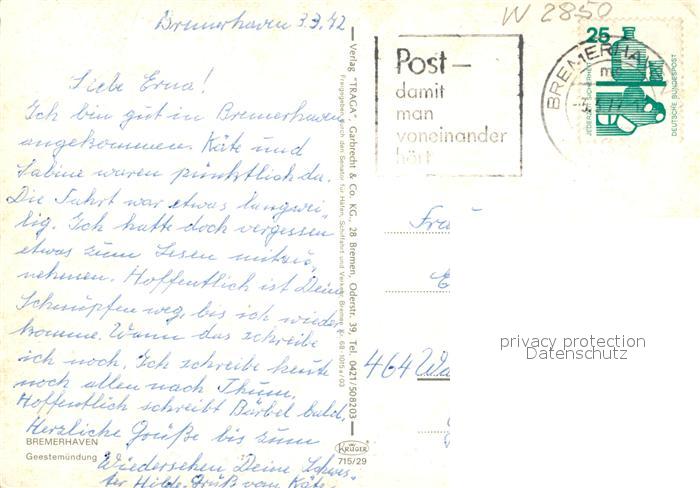 Bremerhaven 3.3.72
Liebe Erna!
Ich bin gut in Bremerhaven
angekommen. Käte und
Sabine waren pünktlich da.
Die Fahrt war etwas langwei-
lig. Ich hatte doch vergessen
etwas zum Lesen mitzu-
nehmen. Hoffentlich ist Dein
Schnupfen weg, bis ich wieder
komme. Wann das schreibe
ich noch. Ich schreibe heute
noch allen nach Thum.
Hoffentlich schreibt Bärbel bald.
Herzliche Grüße bis zum
Wiedersehen Deine Schwes-
ter Hilde. Gruß von Käte.
BREMERHAVEN
Geestemündung
Verlag "TRAGA", Garbrecht & Co. KG., 28 Bremen, Oderstr. 39, Tel. 0421/508203
Freigegeben durch den Senator für Häfen, Schiffahrt und Verkehr, Bremen
KRÜGER
715/29
W 2850
Post –
damit
man
voneinander
hört
BREMERHA
25
DEUTSCHE BUNDESPOST
464
privacy protection
Datenschutz